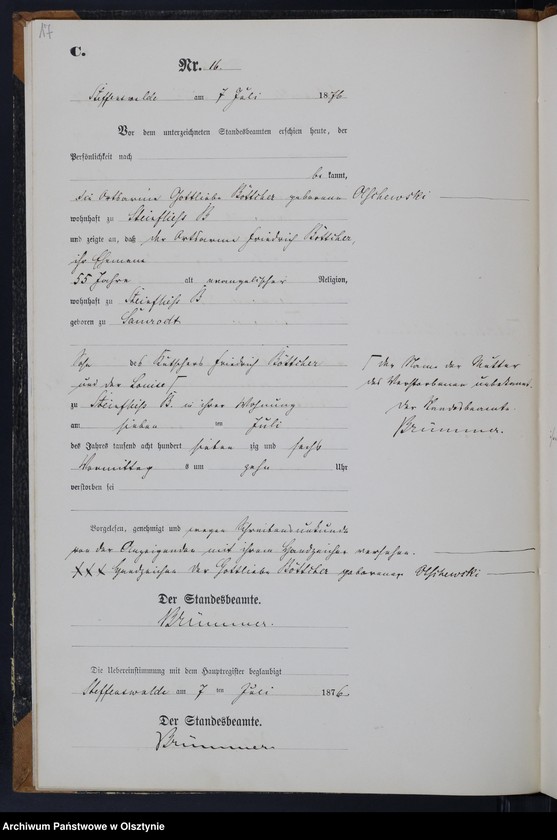 17
C.
Nr. 16.
Steffenswalde am 7 Juli 1876
Vor dem unterzeichneten Standesbeamten erschien heute, der
Persönlichkeit nach
be kannt,
die Ortsarme Gottliebe Böttcher geborene Olschewski
wohnhaft zu B
und zeigte an, daß der Ortsarme Friedrich Böttcher,
ihr Ehemann
55 Jahre alt evangelischer Religion,
wohnhaft zu B
geboren zu
Sohn des Kutschers Friedrich Böttcher
und der Louise ⌈
⌈ der Name der Mutter
des Verstorbenen unbekannt.
Der Standesbeamte.
Brümmer.
zu B. in ihrer Wohnung
am sieben ten Juli
des Jahres tausend acht hundert sieben zig und sechs
Vormittag s um zehn Uhr
verstorben sei
Vorgelesen, genehmigt und wegen Schreibensunkunde
von der Anzeigenden mit ihrem Handzeichen versehen.
XXX Handzeichen der Gottliebe Böttcher geborene Olschewski
Der Standesbeamte.
Brümmer.
Die Uebereinstimmung mit dem Hauptregister beglaubigt
Steffenswalde am 7 ten Juli 1876
Der Standesbeamte.
Brümmer
Archiwum Państwowe w Olsztynie